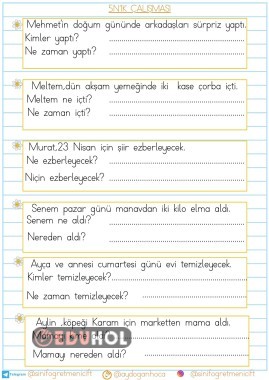 5N1K ÇALIŞMASI
Mehmet'in doğum gününde arkadaşları sürpriz yaptı.
Kimler yaptı?
Ne zaman yaptı?
Meltem,dün akşam yemeğinde iki kase çorba içti.
Meltem ne içti?
Ne zaman içti?
Murat,23 Nisan için şiir ezberleyecek.
Ne ezberleyecek?
Niçin ezberleyecek?
Senem pazar günü manavdan iki kilo elma aldı.
Senem ne aldı?
Nereden aldı?
Ayça ve annesi cumartesi günü evi temizleyecek.
Kimler temizleyecek?
Ne zaman temizleyecek?
Aylin ,köpeği Karam için marketten mama aldı.
EGEDUNOL
Mamayı nereden aldı?
Telegram @sinifogretmenicift @aydoganhoca @sinifogretmenicift